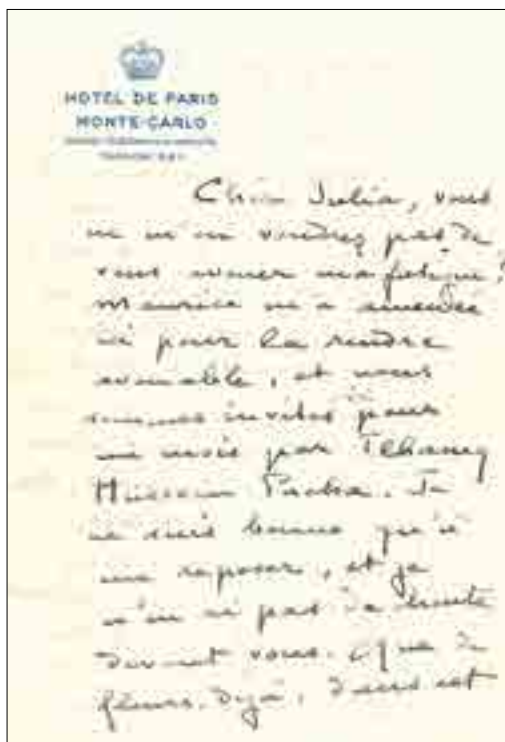 HOTEL DE PARIS
MONTE-CARLO
Chère Julia, vous
ne m'en voudrez pas de
vous avouer ma fatigue?
Maurice m'a amenée
ici pour la rendre
avouable, et nous
sommes invités pour
un mois par
Hussein Pacha. Je
ne suis bonne qu'à
me reposer, et je
n'en ai pas de honte
devant vous. Que de
fleurs, déjà, dans cet